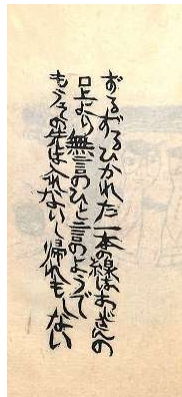 ずるずるひかれた一本の線はおっさんの
口上より無言のひと言のようで
もうその先は入れないし帰れもしない